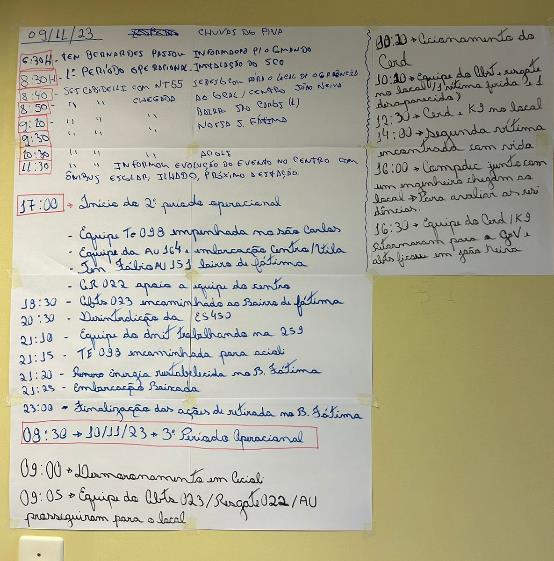 09/11/23 CHUVAS DO PIVA
6:30H - TEN BERNARDES PASSOU INFORMADA P/ O CMANDO
8:30H - 1º PERÍODO OPERACIONAL - INSTALAÇÃO DO SCO
8:40 - SGT COM NT55 O LOCAL DE OCORRÊNCIA
8:50 - " " CHEGADA AO LOCAL / CENTRO JOÃO NEIVA
9:20 " " " BAIRRO SÃO CARLOS
9:30 " " " NOSSA S. FÁTIMA
10:30 " " ACIOLI
11:30 " " INFORMOU EVOLUÇÃO DO EVENTO NO CENTRO COM
ÔNIBUS ESCOLAR, ILHADO, PRÓXIMO DESTAÇÃO
17:00 → Início do 2º período operacional
- Equipe Te 093 empenhada no são Carlos
- Equipe da AU 164 e embarcação Centro/
- Ten. Fábio AU 151 bairro de fátima
- GR 022 apoia a equipe do centro
19:30 - Cbts 023 encaminhado ao Bairro de fátima
20:30 - Desinterdição da ES450
21:10 - Equipe do dnit trabalhando na 259
21:15 - TE 093 encaminhada para acioli
21:20 - energia restabelecida no B. Fátima
21:25 - Embarcação Baixada
23:00 - Finalização das ações de retirada no B. Fátima
09:30 → 10/11/23 → 3º Período Operacional
09:00 → Desmoronamento em Acioli
09:05 → Equipe do Cbts 023 / Resgate 022 / AU
prosseguiram para o local
09:20 → Acionamento do
Cerd
10:20 → Equipe do Cbt e resgate
no local (1 vítima ferida e 1
desaparecida)
12:30 → Cerd e K9 no local
14:00 → Segunda vítima
encontrada com vida
16:00 → Compdec junto com
um engenheiro chegam ao
local → Para avaliar as resi
dências.
16:30 → Equipe do Cerd / K9
retornaram para a GoV e
abts ficou em joão Neiva